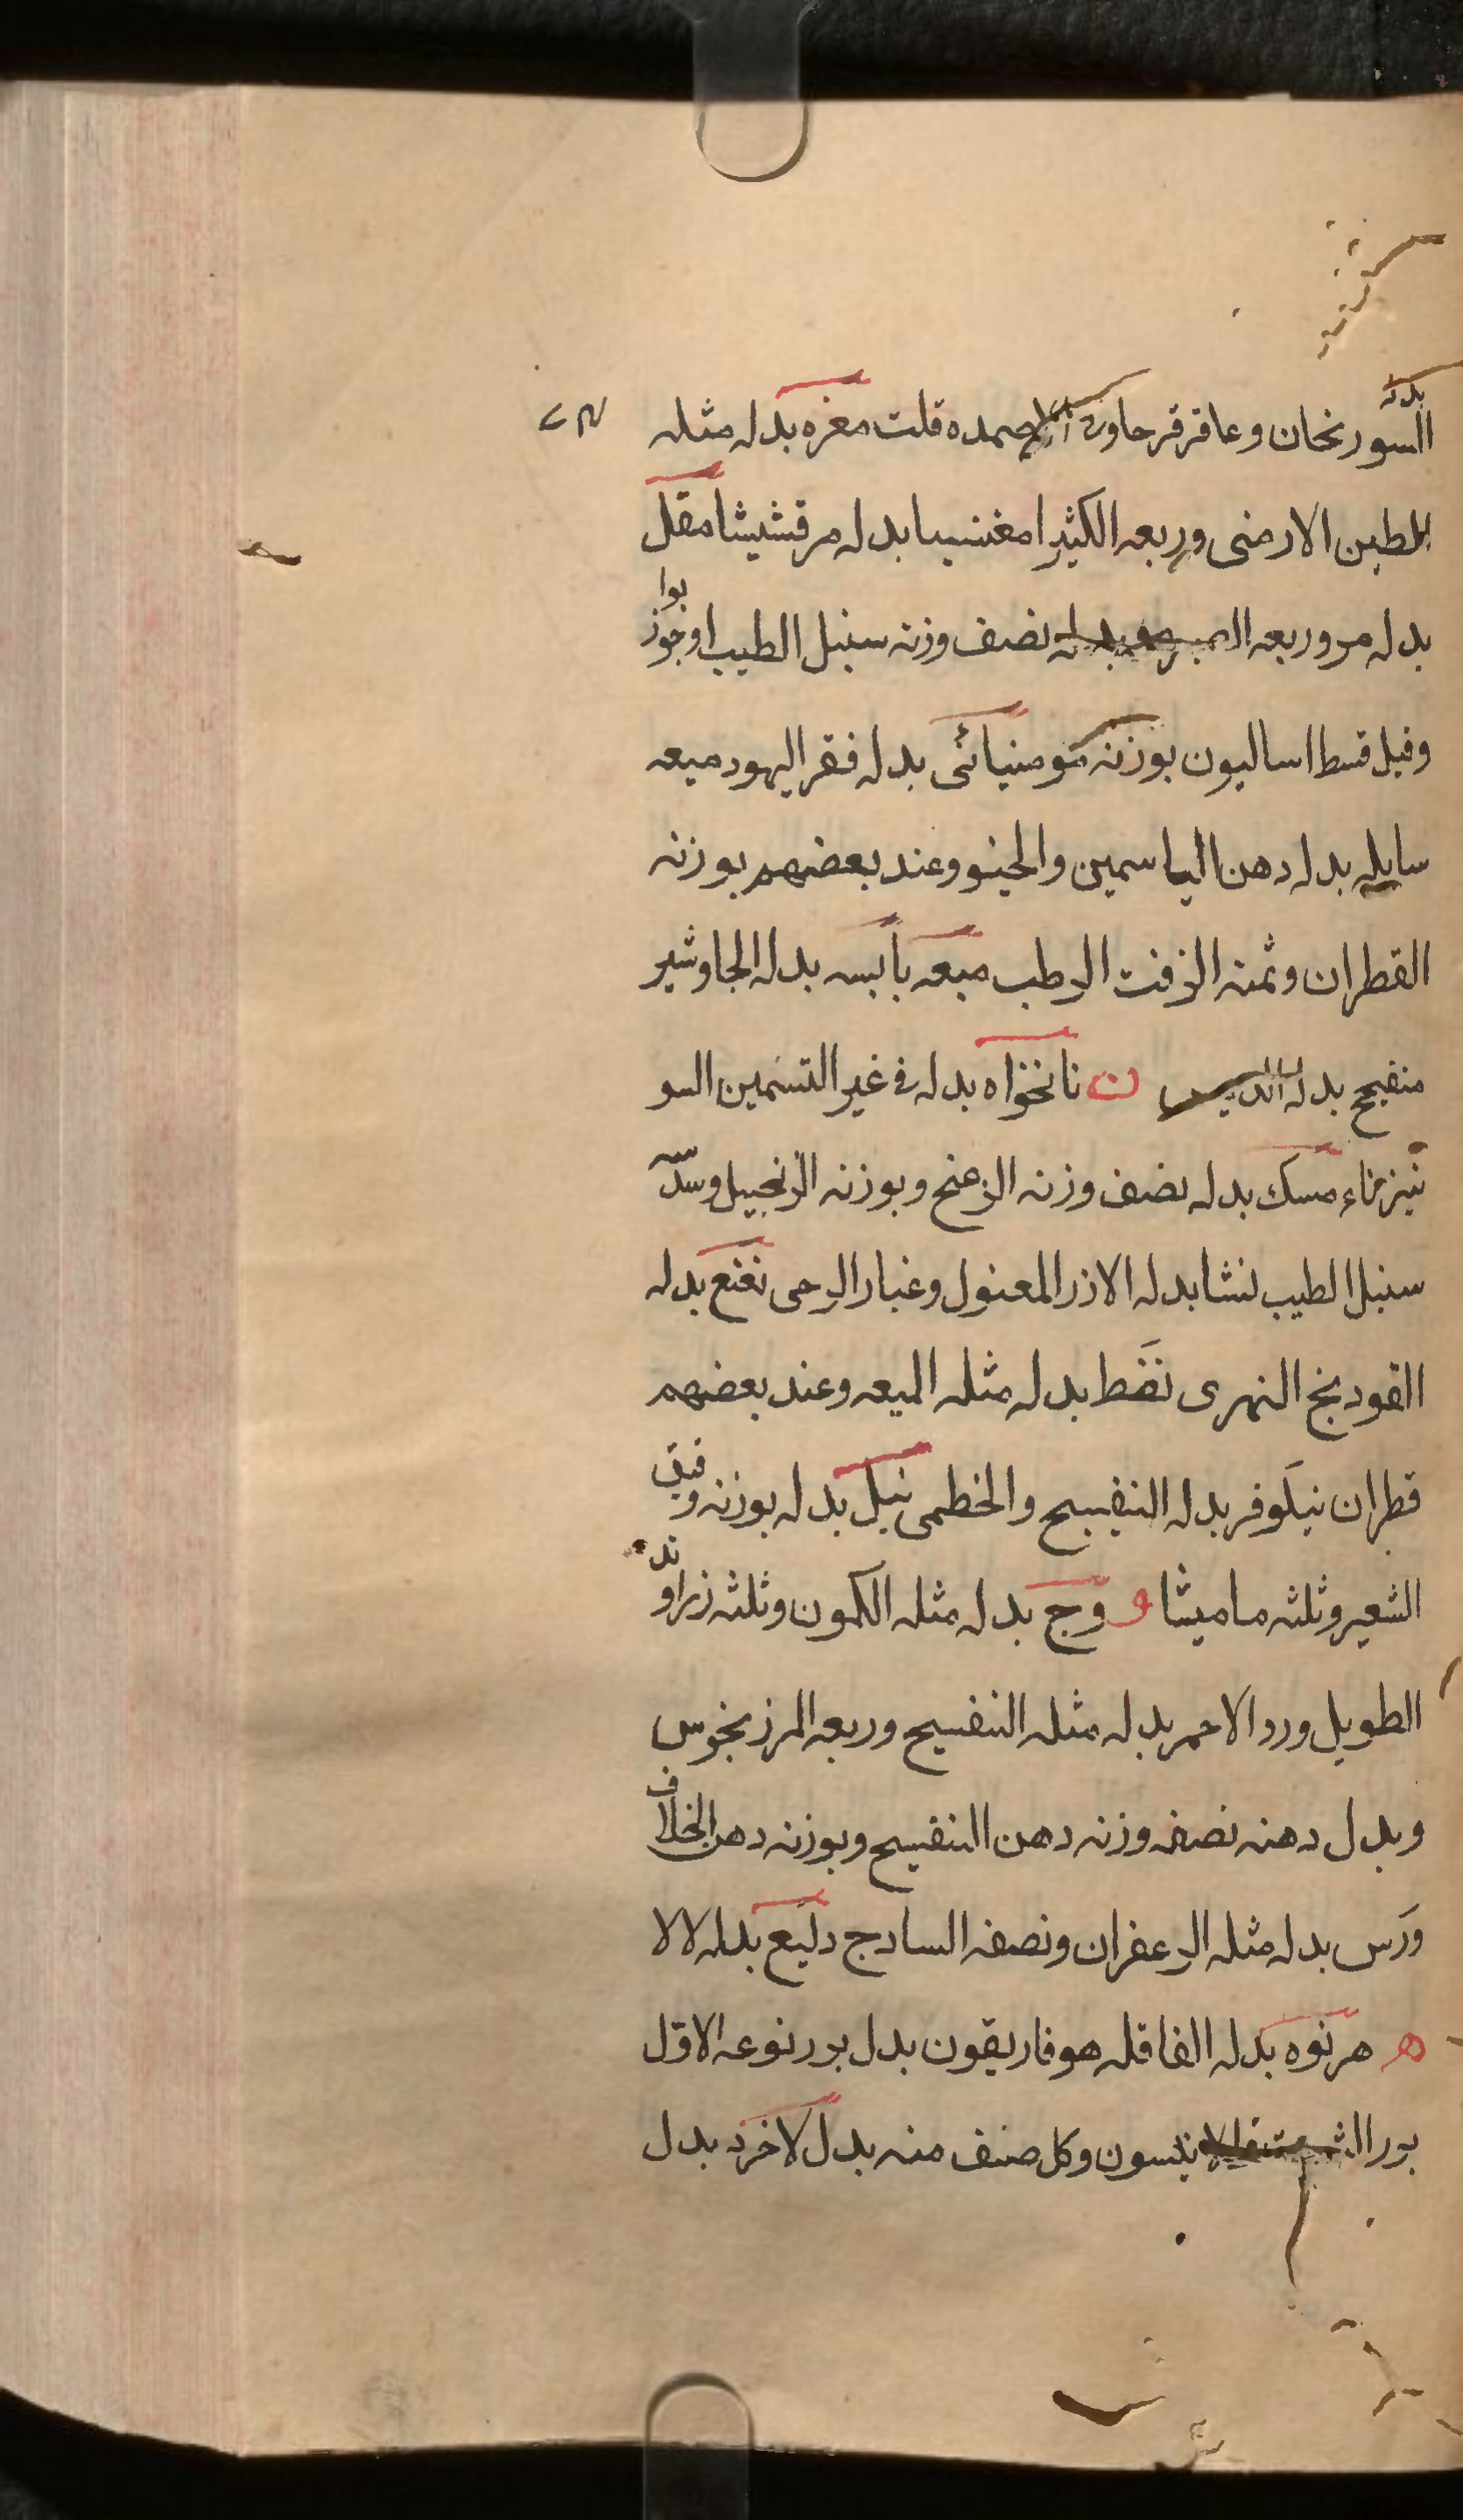 بدله
السورنجان وعاقرقرحا صمده قلت مغره بدله مثله
للطين الارمنى وربعه الكثيرا مغنسيا بدله مرقشيشا مقل
بدله مر وربعه نصف وزنه سنبل الطيب او جوز بوا
وقيل قسط اساليون بوزنه مومنيائى بدله فقر اليهود ميعه
سايله بدله دهن الياسمين والحينو وعند بعضهم بوزنه
القطران وثمنه الزفت الرطب ميعه يابسه بدله الجاوشير
بدله ن نانخواه بدله فى غير التسمين السو
نيز مسك بدله نصف وزنه وبوزنه الزنجبيل وسدّسه
سنبل الطيب نشا بدله الارز المغسول وغبار الرحى نعنع بدله
الفودنج النهرى نفط بدله مثله الميعه وعند بعضهم
قطران نيلوفر بدله البنفسج والخطمى نيل بدله بوزنه دقيق
الشعير وثلثه ماميثا و وج بدله مثله الكمون وثلثه زراوند
الطويل ورد الاحمر بدله مثله البنفسج وربعه المرزنجوس
وبدل دهنه نصف وزنه دهن البنفسج وبوزنه دهن الخلاف
ورس بدله مثله الزعفران ونصفه السادج بدله لالا
ه هرنوه بدله القاقله هوفاريقون بدل بزر نوعه الاول
بزر وكل صنف منه بدل لاخر بدل